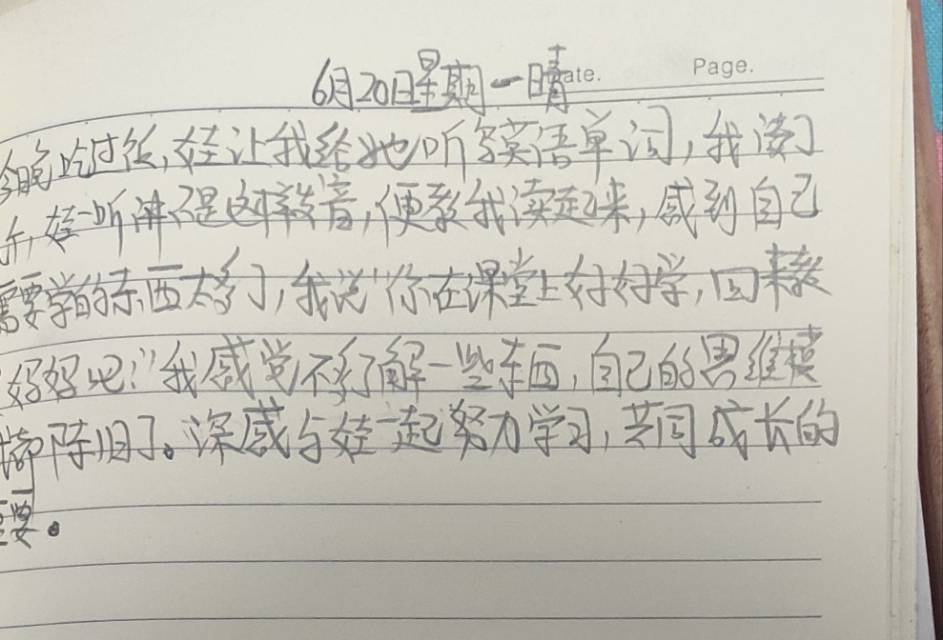 6月20日星期一晴
Date. Page.
今晚吃过饭,娃让我给她听写英语单词,我读了
娃一听讲不是这个教音,便教我读起来,感到自己
需要学的东西太多了,我说"你在课堂上好好学,回来教
妈妈吧!"我感觉不了解一些东西,自己的思维模
都陈旧了。深感与娃一起努力学习,共同成长的
重要。